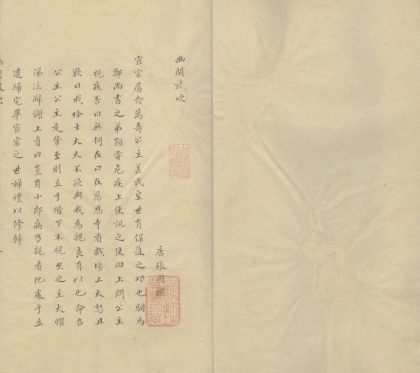 幽閒鼓吹
唐張固
宣宗屬念萬壽公主蓋武皇世有保護之功也駙馬
鄭尚書之弟顗嘗危疾上使訊之使回上問公主
視疾否曰無何在曰在慈恩寺看戲場上大怒且
歎曰我怪士大夫不欲與我為親良有以也命召
公主公主走輦至則立于階下不視久之主大懼
涕泣辭謝上責曰豈有小郎病乃親看他處乎立
遣歸宅畢宣宗之世婦禮以修飾